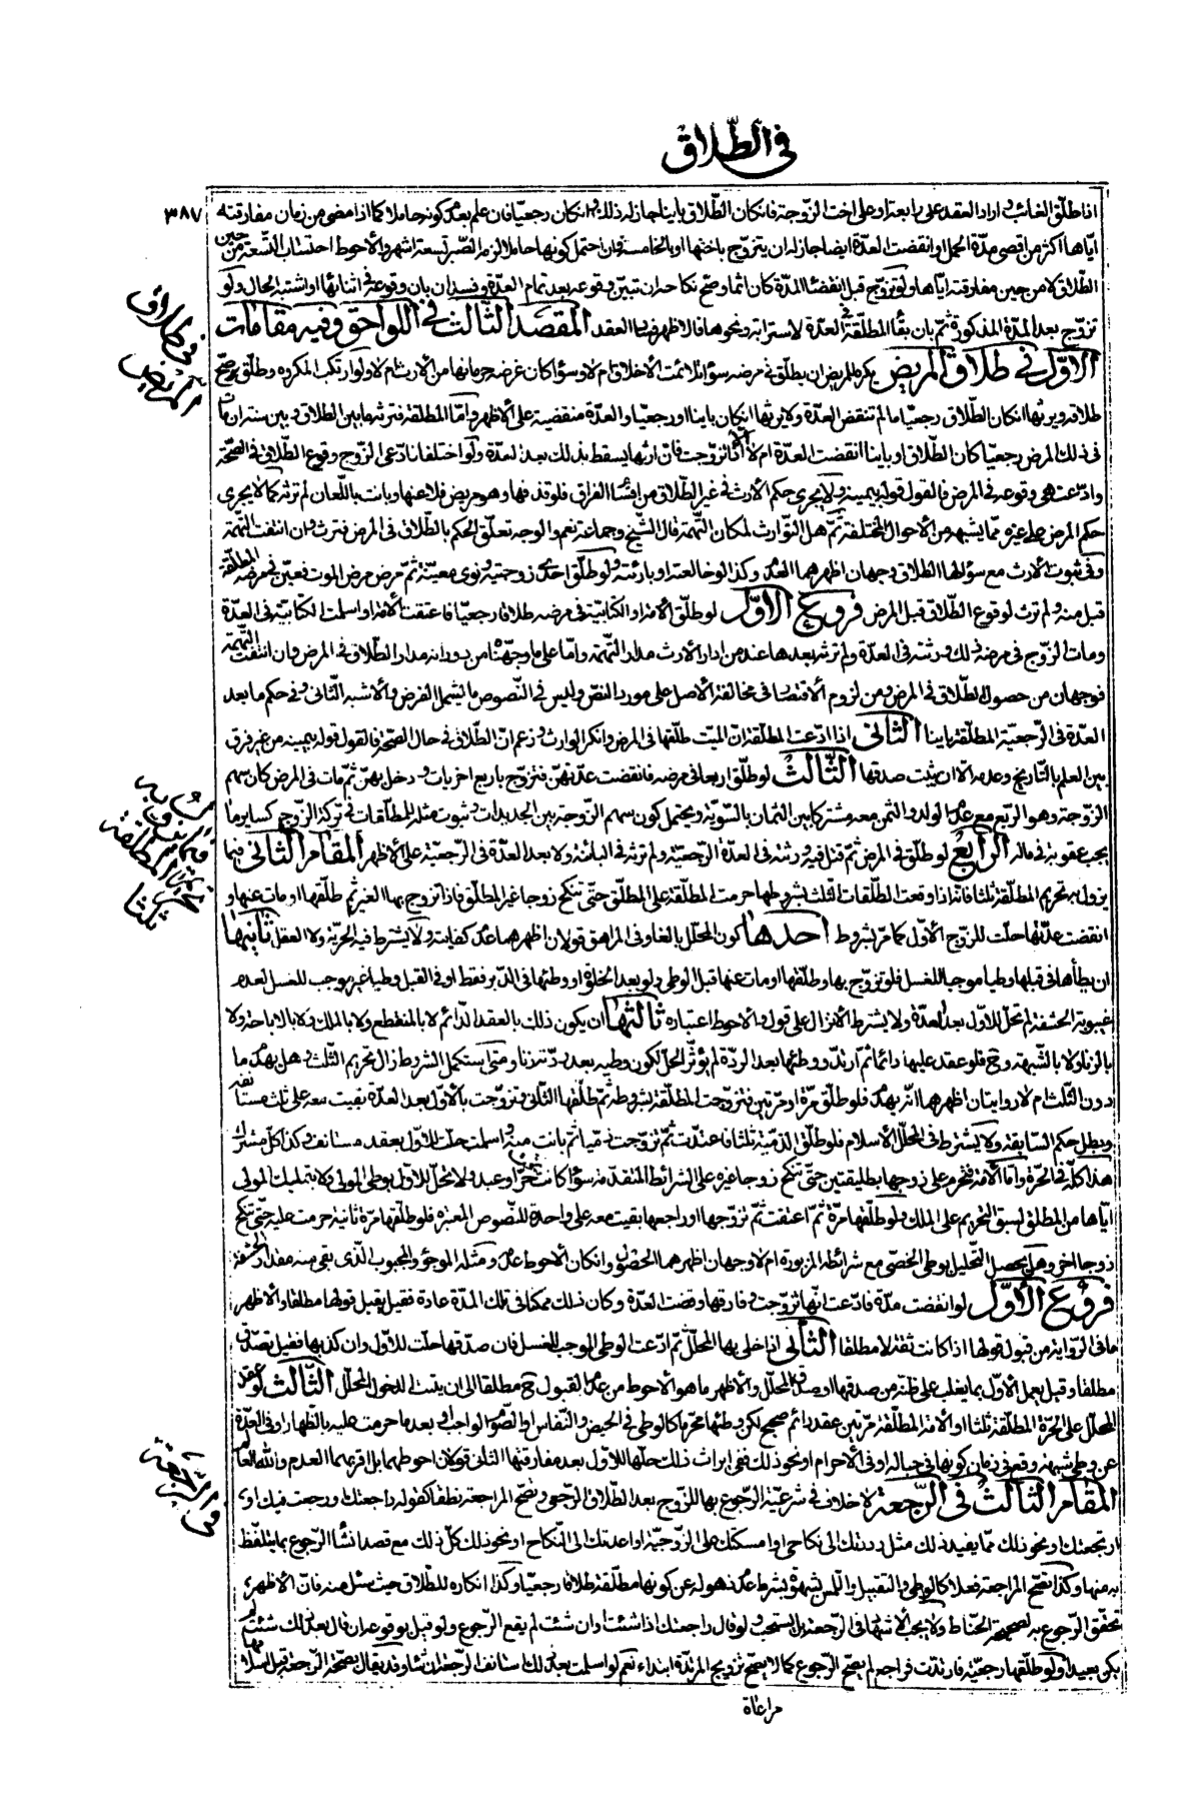 في الطّلاق
٣٨٧
اذا طلّق الغائب و اراد العقد على رابعة او على اخت الزّوجة فان كان الطّلاق باينا جاز له ذلك و ان كان رجعيّا فان علم بعدم كونه حاملا كما اذا مضى من زمان مفارقته
ايّاها اكثر من اقصى مدّة الحمل و انقضت العدّة ايضا جاز له ان يتزوّج باختها او بالخامسة و ان احتمل كونها حاملا لزمه الصّبر تسعة اشهر و الأحوط احتساب التّسعة من حين
الطّلاق لا من حين مفارقته ايّاها و لو تزوّج قبل انقضاء المدّة كان اثما و صحّ نكاحه ان تبيّن وقوعه بعد تمام العدّة و فسد ان بان وقوعه في اثنائها او اشتبه الحال و لو
تزوّج بعد المدّة المذكورة ثمّ بان بقاء المطلّقة في العدّة لاسترابة و نحوها فالاظهر فساد العقد المقصد الثّالث في اللواحق و فيه مقامات
الاوّل في طلاق المريض يكره للمريض ان يطلّق في مرضه سواء لائمت الأخلاق ام لا و سواء كان غرضه حرمانها من الأرث ام لا و لو ارتكب المكروه و طلّق صحّ
طلاقه و يرثها ان كان الطّلاق رجعيّا ما لم تنقض العدّة و لا يرثها ان كان باينا او رجعيّا و العدّة منقضية على الأظهر و امّا المطلقة فترثه ما بين الطلاق و بين سنة ان مات
في ذلك المرض رجعيّا كان الطّلاق او باينا انقضت العدّة ام لا الّا اذا تزوّجت فانّ ارثها يسقط بذلك بعد العدّة و لو اختلفا فادّعى الزّوج وقوع الطّلاق في الصّحّة
و ادّعت هي وقوعه في المرض فالقول قوله بيمينه و لا يجرى حكم الأرث في غير الطّلاق من اقسام الفراق فلو قذفها و هو مريض فلاعنها و بانت باللّعان لم ترثه كما لا يجرى
حكم المرض على غيره ممّا يشبهه من الأحوال المختلفة ثمّ هل التّوارث لمكان التّهمة قال الشّيخ و جماعة نعم و الوجه تعلّق الحكم بالطّلاق في المرض فترث و ان انتفت التّهمة
و في ثبوت الأرث مع سؤالها الطلاق وجهان اظهرهما العدم و كذا لو خالعته او بارئته و لو طلّق احدى زوجتيه و نوى معيّنة ثمّ مرض مرض الموت فعيّن في مرضه المطلّقة
قبل منه و لم ترث لوقوع الطّلاق قبل المرض فروع الاوّل لو طلّق الأمة او الكتابيّة في مرضه طلاقا رجعيّا فاعتقت الأمة او اسلمت الكتابيّة في العدّة
و مات الزّوج في مرضه ذلك ورثته في العدّة و لم ترثه بعدها عند من ادار الأرث مدار التّهمة و امّا على ما وجّهناه من دورانه مدار الطّلاق في المرض و ان انتفت التّهمة
فوجهان من حصول الطّلاق في المرض و من لزوم الأقتصار في مخالفة الأصل على مورد النصّ و ليس في النّصوص ما يشمل الفرض و الأشبه الثّاني و في حكم ما بعد
العدّة في الرّجعيّة المطلّقة باينا الثّاني اذا ادّعت المطلّقة انّ الميّت طلّقها في المرض و انكر الوارث و زعم انّ الطّلاق في حال الصّحّة فالقول قوله بيمينه من غير فرق
بين العلم بالتّاريخ و عدمه الّا ان يثبت صدقها الثّالث لو طلّق اربعا في مرضه فانقضت عدّتهنّ فتزوّج باربع اخريات و دخل بهنّ ثمّ مات في المرض كان سهم
الزّوجة و هو الرّبع مع عدم الولد و الثّمن معه مشتركا بين الثمان بالسّويّة و يحتمل كون سهم الزّوجة بين الجديدات و ثبوت مثله للمطلّقات في تركة الزّوج كساير ما
يجب عقوبة في ماله الرّابع لو طلّق في المرض ثمّ قتل فيه ورثته في العدّة الرّجعيّة و لم ترثه في البائنة و لا بعد العدّة في الرّجعيّة على الأظهر المقام الثاني فيما
يزول به تحريم المطلّقة ثلثا فاذا وقعت الطّلقات الثلث بشروطها حرمت المطلّقة على المطلّق حتّى تنكح زوجا غير المطلّق فاذا تزوّج بها الغير ثمّ طلّقها او مات عنها و
انقضت عدّتها حلّت للزّوج الأوّل كما مرّ بشروط احدها كون المحلّل بالغا و في المراهق قولان اظهرهما عدم كفايته و لا يشترط فيه الحرّيّة و لا العقل ثانيها
ان يطأها في قبلها وطيا موجبا للغسل فلو تزوّج بها و طلّقها او مات عنها قبل الوطى و لو بعد الخلوة او وطئها في الدّبر فقط او في القبل وطيا غير موجب للغسل لعدم
غيبوبة الحشفة لم تحلّ للأوّل بعد العدّة و لا يشترط الأنزال على قول و الأحوط اعتباره ثالثها ان يكون ذلك بالعقد الدّائم لا بالمنقطع و لا بالملك و لا بالاباحة و لا
بالزّنا و لا بالشّبهة و ح فلو عقد عليها دائما ثمّ ارتدّ و وطئها بعد الردّة لم يؤثّر الحلّ لكون وطيه بعد ردّته زنا و متى استكمل الشّروط زال تحريم الثّلث و هل يهدم ما
دون الثّلث ام لا روايتان اظهرهما انّه يهدم فلو طلّق مرّة او مرّتين فتزوّجت المطلّقة بشروطه ثمّ طلّقها الثّاني و تزوّجت بالأوّل بعد العدّة بقيت معه على ثلث مستأنفة
و يبطل حكم السّابقة و لا يشترط في المحلّل الأسلام فلو طلّق الذّمّية ثلثا فاعتدّت ثمّ تزوّجت ذمّيا ثمّ بانت منه و اسلمت حلّت للأوّل بعقد مستانف و كذا كلّ مشرك
هذا كلّه في الحرّة و امّا الأمة فتحرم على زوجها بطليقتين حتّى تنكح زوجا غيره على الشّرائط المتقدّمة سواء كانت تحت حرّ او عبد و لا تحلّ للأوّل بوطى المولى و لا بتمليك المولى
ايّاها من المطلّق لسبق التّحريم على الملك و لو طلّقها مرّة ثمّ اعتقت ثمّ تزوّجها او راجعها بقيت معه على واحدة للنّصوص المعتبرة فلو طلّقها مرّة ثانية حرمت عليه حتّى تنكح
زوجا اخر و هل يحصل التّحليل بوطى الخصّى مع شرائطه المزبورة ام لا وجهان اظهرهما الحصول و ان كان الأحوط عدمه و مثله الموجوء و المجبوب الّذى بقى منه مقدار الحشفة
فروع الأوّل لو انقضت مدّة فادّعت انّها تزوّجت و فارقها و قضت العدّة و كان ذلك ممكنا في تلك المدّة عادة فقيل يقبل قولها مطلقا و الأظهر
ما في الرّواية من قبول قولها اذا كانت ثقة لا مطلقا الثّاني اذا خلى بها المحلّل ثمّ ادّعت الوطى الموجب للغسل فان صدّقها حلّت للأوّل و ان كذّبها فقيل تصدّق
مطلقا و قيل يعمل الأوّل بما يغلب على ظنّه من صدقها او صدق المحلّل و الأظهر ما هو الأحوط من عدم القبول ح مطلقا الى ان يثبت الدخول المحلّل الثّالث لو عقد
المحلّل على الحرّة المطلّقة ثلثا او الأمة المطلّقة مرّتين عقد دائم صحيح لكن وطئها محرّما كالوطى في الحيض و النّفاس او الصّوم الواجب او بعد ما حرمت عليه بالظّهار او في العدّة
عن وطى شبهة وقع في زمان كونها في حباله او في الأحرام او نحو ذلك ففي ايراث ذلك حلّها للأوّل بعد مفارقتها الثّاني قولان احوطهما بل اقربهما العدم و اللّه العالم
المقام الثالث في الرّجعة لا خلاف في شرعيّة الرّجوع بها للزّوج بعد الطّلاق الرّجعي و تصّح المراجعة نطقا كقوله راجعتك و رجعت فيك او
ارتجعتك و نحو ذلك ممّا يفيد ذلك مثل رددتك الى نكاحي او امسكتك على الزّوجيّة او اعدتك الى النّكاح او نحو ذلك كلّ ذلك مع قصد انشاء الرّجوع بما يتلفّظ
به منها و كذا تصّح المراجعة فعلا كالوطى و التقبيل و اللّمس بشهوة بشرط عدم ذهوله عن كونها مطلّقة طلاقا رجعيّا و كذا انكاره للطّلاق حيث سئل عنه فانّ الأظهر
تحقّق الرّجوع به لصحيحة الحنّاط و لا يجب الأشهاد في الرّجعة بل يستحب و لو قال راجعتك اذا شئت او ان شئت لم يقع الرّجوع و لو قيل بوقوعه ان قال بعد ذلك شئت لم
يكن بعيدا و لو طلّقها رجعيّة فارتدّت فراجع لم يصّح الرّجوع كما لا يصّح تزويج المرتدّة ابتداء نعم لو اسلمت بعد ذلك استانف الرّجعة ان شاء و قد يقال بصحّة الرّجعة قبل اسلامها
مراعاة
في طلاق
المريض
فيما يزول به
تحريم المطلقة
ثلثا
في الرّجعة